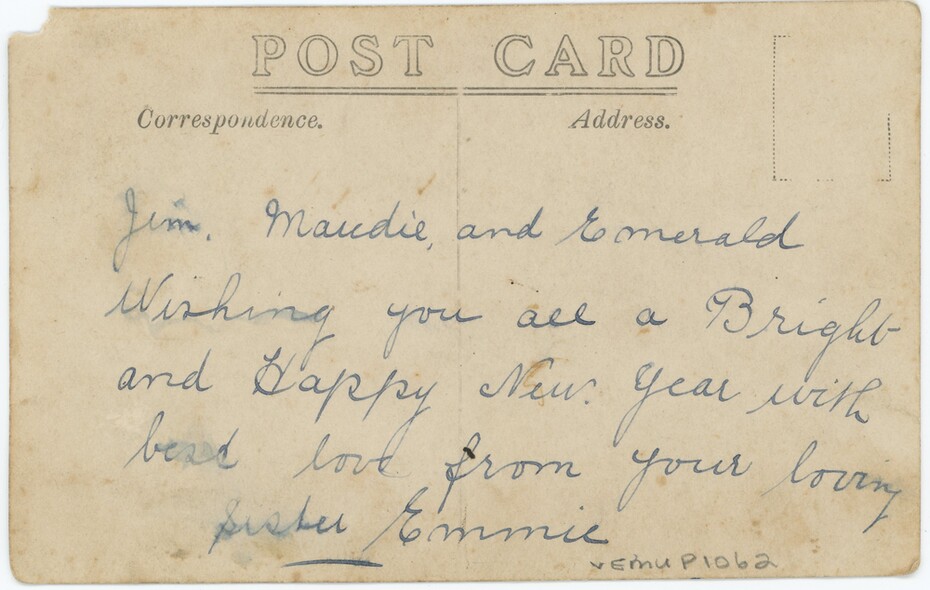 POST CARD
Correspondence. Address.
Jim. Maudie, and Emerald
Wishing you all a Bright
and Happy New. Year with
best love from your loving
sister Emmie
VEMU P1062